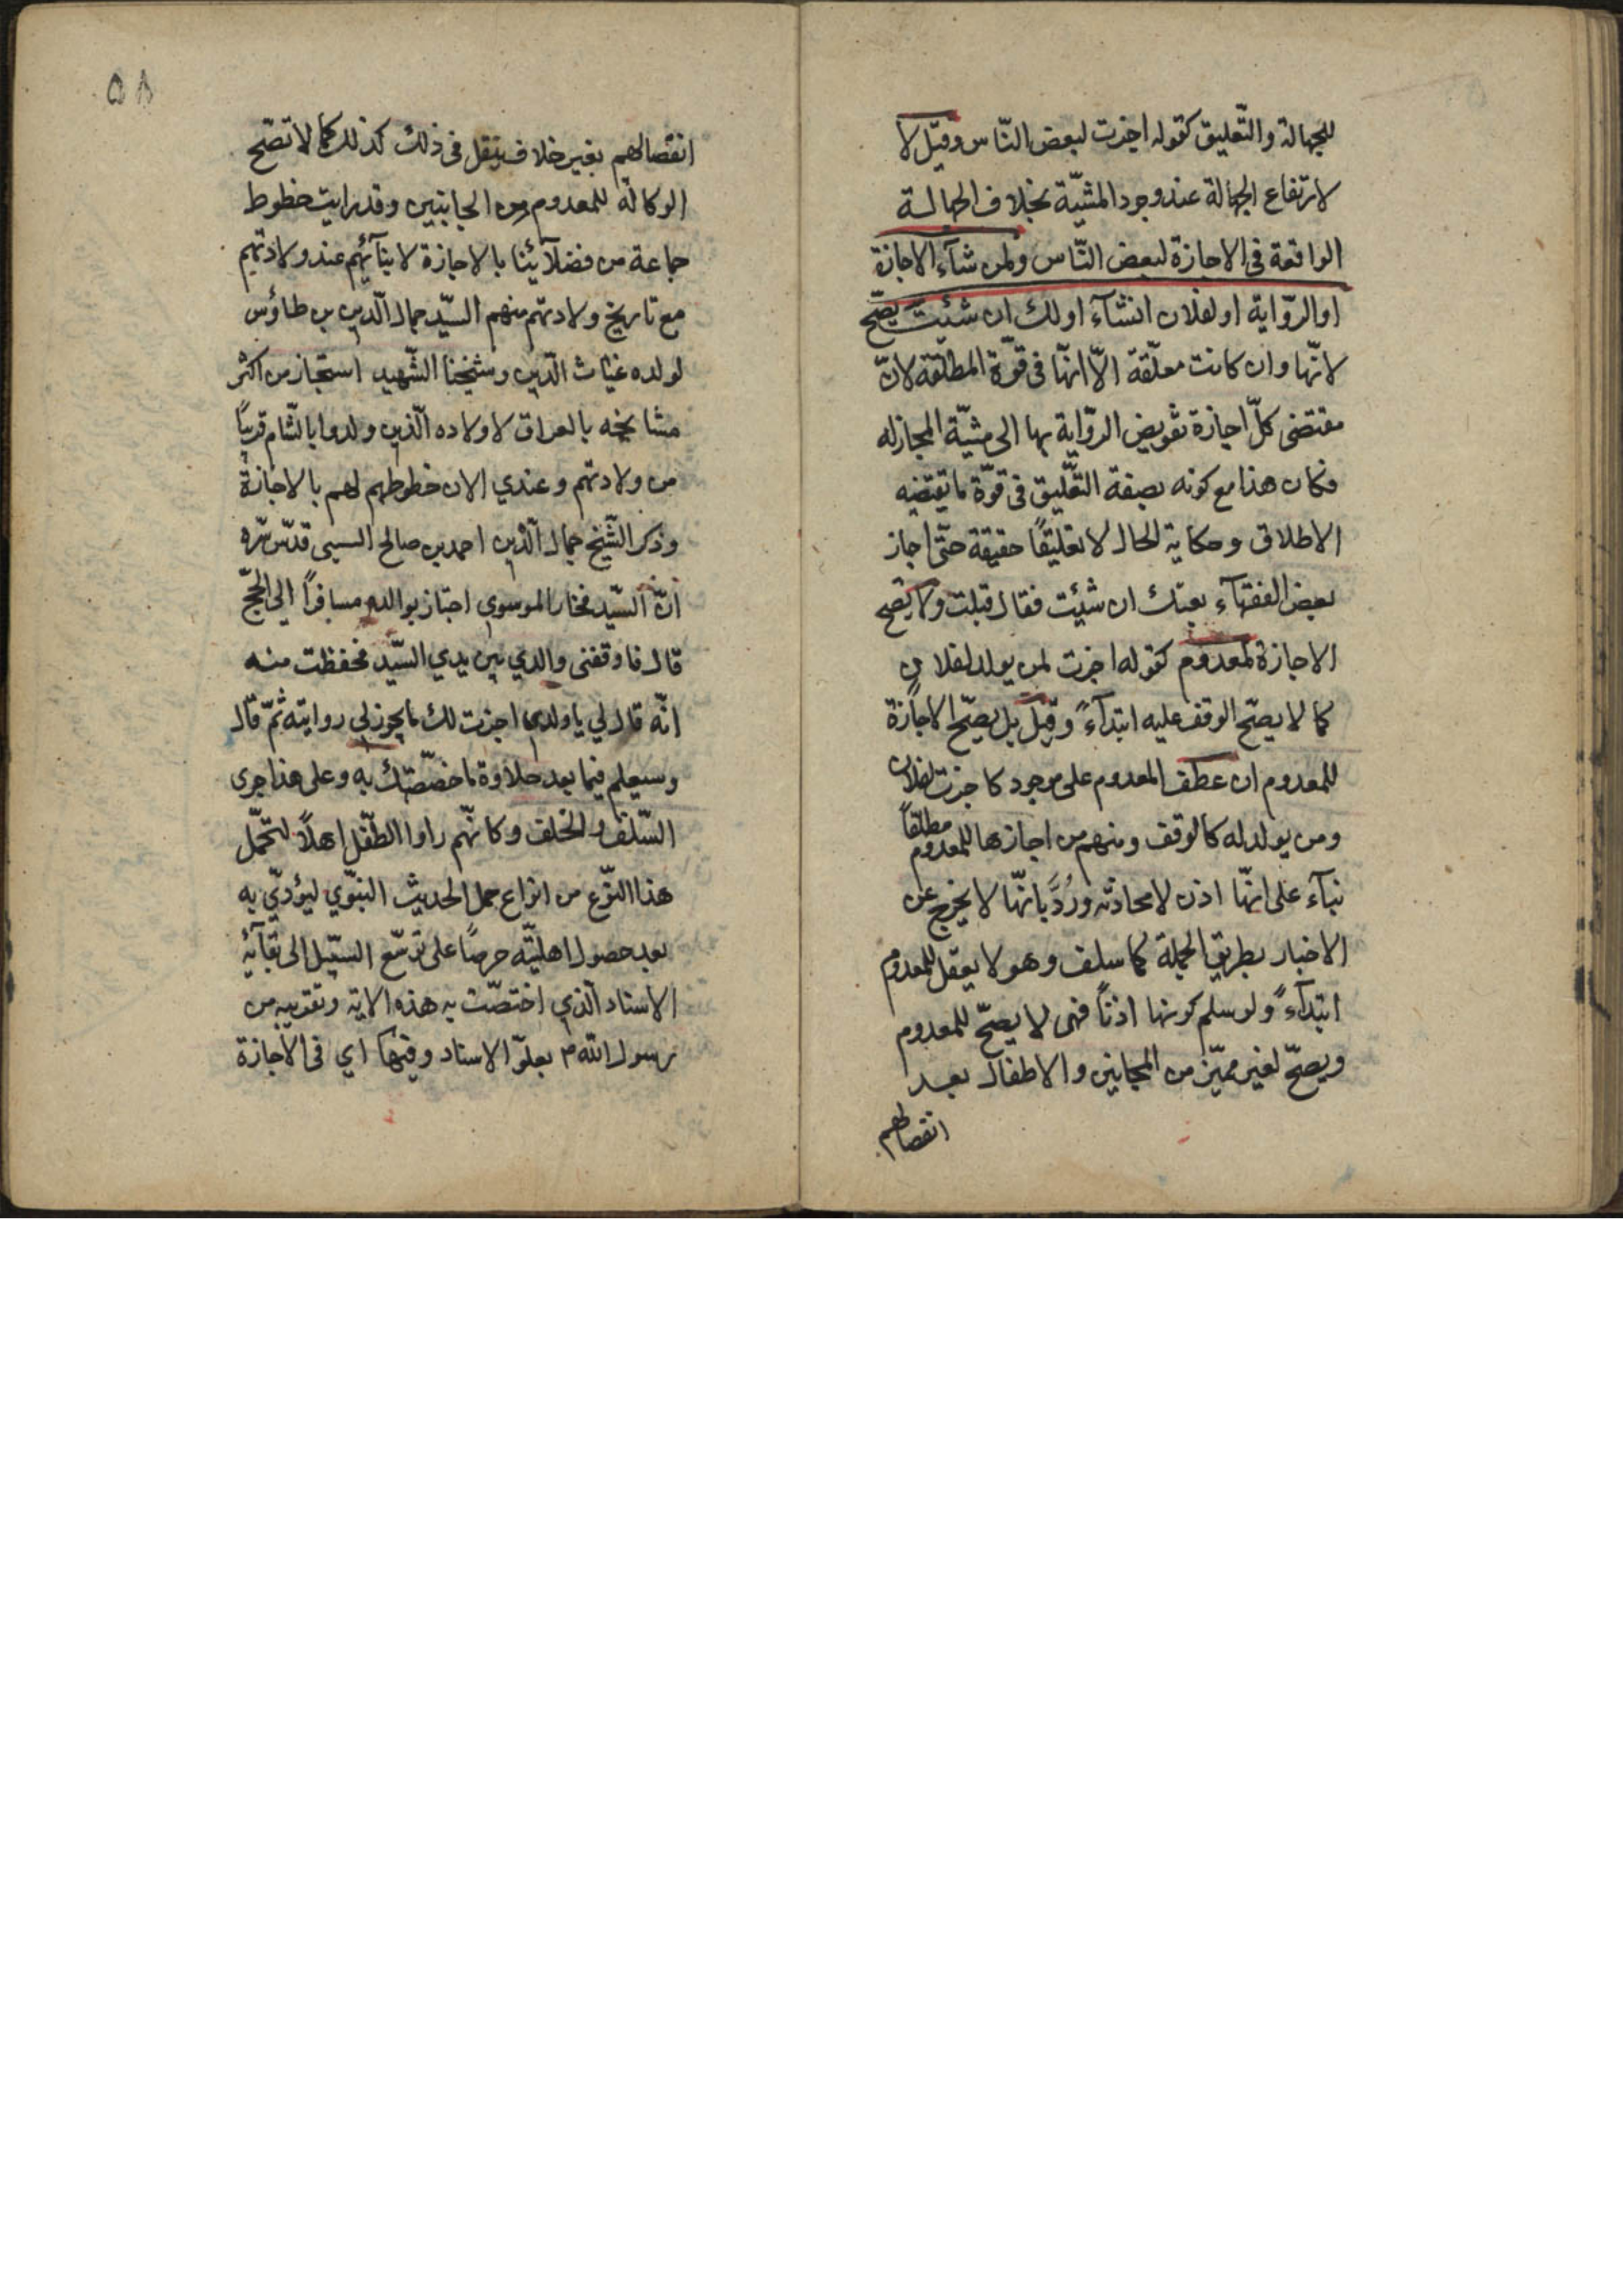 للجهالة والتّعليق كقوله اجزت لبعض النّاس وقيل لا
لارتفاع الجهالة عند وجود المشيّة بخلاف الجهالة
الواقعة فى الاجازة لبعض النّاس ولمن شآء الاجازة
او الرّواية او لفلان انشآء او لك ان شئت يصّح
لانّها وان كانت معلّقة الّا انّها فى قوّة المطلقة لانّ
مقتضى كلّ اجازة تفويض الرّواية بها الى مشيّة المجاز له
فكان هذا مع كونه بصيغة التّعليق فى قوّة ما يقتضيه
الاطلاق وحكاية الحال لا تعليقاً حقيقة حتّى اجاز
بعض الفقهآء بعتك ان شئت فقال قبلت ولا يصّح
الاجازة لمعدوم كقوله اجزت لمن يولد لفلان
كما لا يصّح الوقف عليه ابتدآءً وقيل بل يصّح الاجازة
للمعدوم ان عطف المعدوم على موجود كاجزت لفلان
ومن يولد له كالوقف ومنهم من اجازها للمعدوم مطلقاً
بنآء على انّها اذن لا محادثه ورُدّ بانّها لا يخرج عن
الاخبار بطريق الجملة كما سلف وهو لا يعقل للمعدوم
ابتدآءً ولو سلم كونها اذناً فهى لا يصّح للمعدوم
ويصّح لغير مميّز من المجانين والاطفال بعد
انفصالهم
٥٨
انفصالهم بغير خلاف ينقل فى ذلك كذلك كما لا تصّح
الوكالة للمعدوم من الجانبين وقد رايت خطوط
جماعة من فضلآئنا بالاجازة لابنآئهم عند ولادتهم
مع تاريخ ولادتهم منهم السّيد جمال الّدين بن طاؤس
لولده غياث الّدين وشيخنا الشّهيد استجاز من اكثر
مشايخه بالعراق لاولاده الّذين ولدوا بالشّام قريباً
من ولادتهم وعندي الان خطوطهم لهم بالاجازة
وذكر الشّيخ جمال الّدين احمد بن صالح السيبى قدّس سّره
انّ السّيد فخار الموسوي اجتاز بوالده مسافراً الى الحجّ
قال فاوقفنى والدي بين يدي السّيد فحفظت منه
انّه قال لي يا ولدي اجزت لك ما يجوز لي روايته ثمّ قال
وسيعلم فيما بعد حلاوة ما خصّصتك به وعلى هذا جرى
السّلف والخلف وكانّهم راوا الطّفل اهلاً لتحّمل
هذا النّوع من انواع حمل الحديث النبّوي ليؤدّي به
بعد حصول اهليّته حرصاً على توسّع السّبيل الى بقآئه
الاسناد الّذي اختصّت به هذه الامة وتقريبه من
رسول الله ص بعلوّ الاسناد وفيها اي فى الاجازة